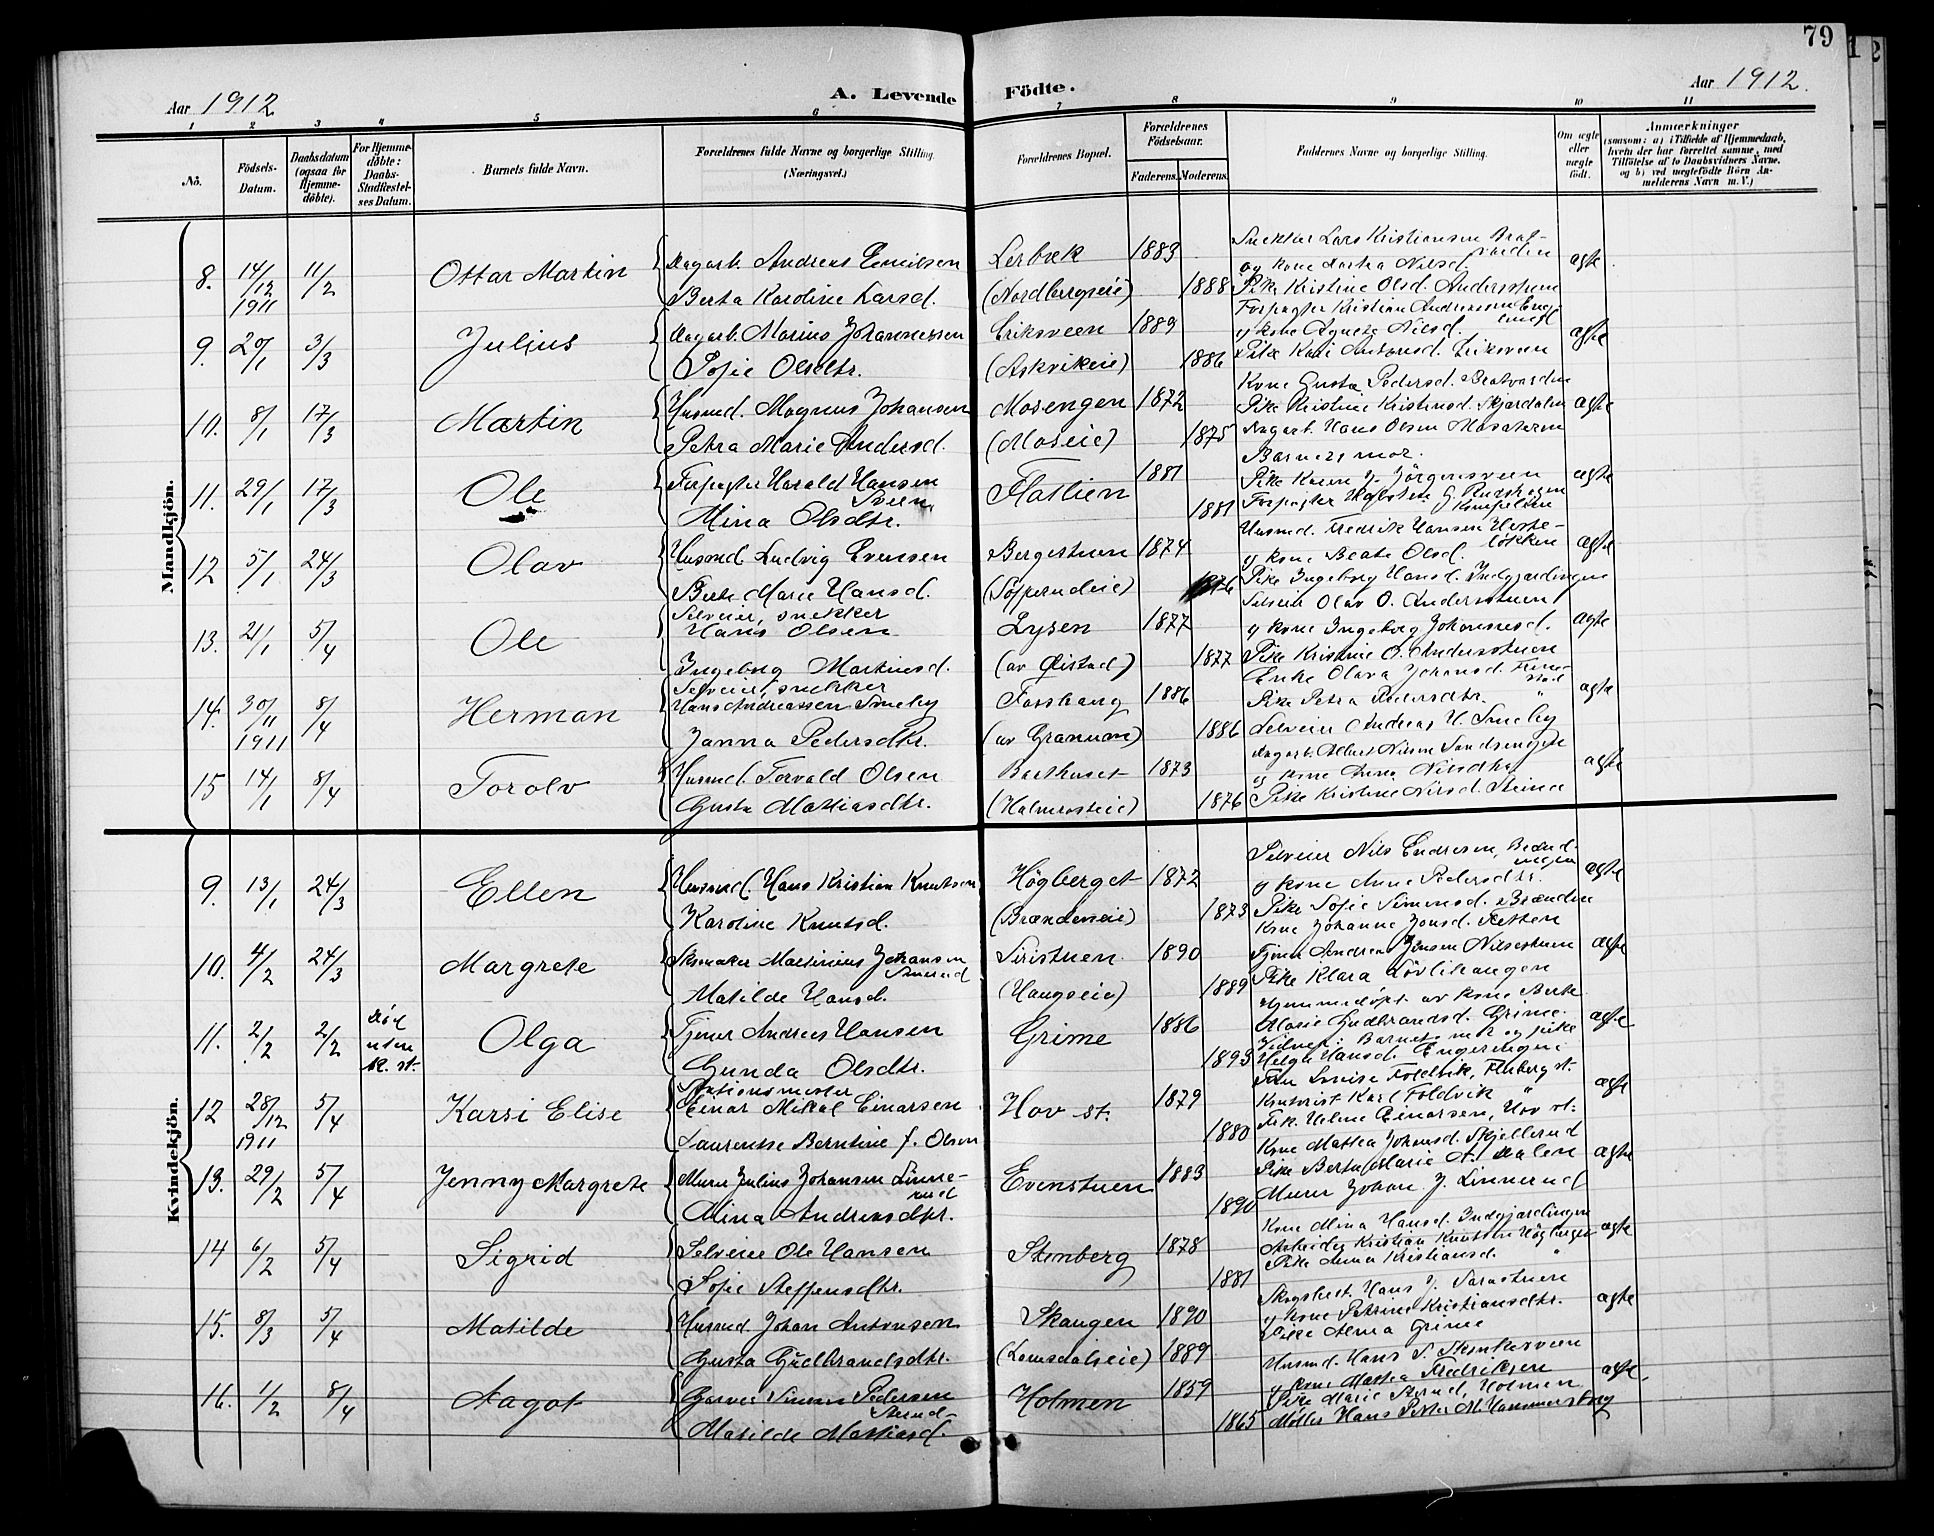 79
Aar 1912
A. Levende Födte.
Aar 1912.
1 2 3 4 5 6 7 8 9 10 11
Nö.
Födsels-Datum.
Daabsdatum (ogsaa for Hjemmedöbte).
For Hjemmedöbte: Daabs-Stadfæstelses Datum.
Barnets fulde Navn.
Forældrenes fulde Navne og borgerlige Stilling. (Næringsvei.)
Forældrenes Bopæl.
Forældrenes Födselsaar.
Faderens. Moderens.
Faddernes Navne og borgerlige Stilling.
Om ægte eller uægte födt.
Anmærkninger
(saasom: a) i Tilfælde af Hjemmedaab, hvem der har forrettet samme, med Tilföielse af to Daabsvidners Navne, og b) ved uægtefödte Börn Anmelderens Navn m. V.)
Mandkjön.
8. 14/12 1911 11/2 Ottar Martin
Dagarb. Andreas Emilsen
Berta Karoline Larsd.
Lerbæk (Nordbergseie) 1883 1888
Snekker Lars Kristiansen
og kone Marta Nilsd.
Pike Kristine Olsd. Andersstuen
ægte
9. 20/1 3/3 Julius
Dagarb. Marius Johannessen
Sofie Olsdtr.
Eriksveen (Askvikeie) 1889 1886
Forpagter Kristian Anderssen
og kone Agnete Nilsd.
Pike Kari Antonsd. Eriksveen
ægte
10. 8/1 17/3 Martin
Husmd. Magnus Johansen
Petra Marie Andersd.
Mosengen (Moseie) 1872 1875
Kone Gusta Pedersd. Bratvarden
Pike Kristine Kristensd. Skjærdalen
Dagarb. Hans Olsen Mosateren
ægte
11. 29/1 17/3 Ole
Forpagter Harald Hansen Sveen
Mina Olsdtr.
Flatlien 1881 1881
Barnets mor.
Pike Karen J. Jörgensveen
Forpagter
ægte
12 5/1 24/3 Olav
Husmd. Ludvig Evensen
Berte Marie Hansd.
Bergestuen 1874 1876
Husmd. Fredrik Hansen Hestelökken
og kone Beate Olsd.
Pike Ingeborg Hansd. Indgjærdingen
ægte
13. 21/1 5/4 Ole
Selveier, snekker
Hans Olsen
Ingeborg Martinsd.
Lysen (av Öistad) 1877 1877
Selveier Olav O. Andersstuen
og kone Ingeborg Johannesd.
Pike Kristine O. Andersstuen
ægte
14. 30/11 1911 8/4 Herman
Selveier, snekker
Hans Andreassen Smeby
Janna Pedersdtr.
Fosshaug (av Granum) 1886 1886
Enke Olava Johansd.
Pike Petra Pedersdtr. "
Selveier Andreas H. Smeby
ægte
15 14/1 8/4 Torolv
Husmd. Torvald Olsen
Gusta Mattiasdtr.
Bakhuset 1873 1876
Dagarb. Albert Nilsen Sandsengen
og kone Anna Nilsdtr.
Pike Kristine Nilsd. Steina
ægte
Kvindekjön.
9. 13/1 24/3 Ellen
Husmd. Hans Kristian Knutsen
Karoline Knutsd.
Högberget (Brændeneie) 1872 1873
Selveier Nils Endresen,
og kone Anne Pedersdtr.
Pike Sofie Simensd. Brænden
Kone Johanne Jonsd. Sletten
ægte
10. 4/2 24/3 Margrete
Skomaker Martinius Johansen
Matilde Hansd.
Siristuen (Haugseie) 1890 1889
Tjener Andreas Jensen Nilsestuen
Pike Klara Lövlihaugen
ægte
11. 2/2 2/2 Död uten k. st. Olga
Tjener Andreas Hansen
Gunda Olsdtr.
Grime 1886 1893
Hjemmedöpt av kone Berte
Marie Gudbrandsd. Grime.
Vidner: Barnets mor og pike
Helga Hansd. Engeringen
ægte
12 28/12 1911 5/4 Karsi Elise
Stationsmester
Einar Mikal Einarsen
Laurentse Berntine f. Olsen
Hov st. 1879 1880
Fru Louise Foldvik, Fluberg st.
Kontorist Karl Foldvik "
Frk. Helene Einarsen, Hov st.
ægte
13. 29/2 5/4 Jenny Margrete
Murer Julius Johansen Linnerud
Mina Andreasdtr.
Evenstuen 1883 1890
Kone Mattea Johansd. Skjellerud
Pike Berte Marie A. Dalen
Murer Johan J. Linnerud
ægte
14 6/2 5/4 Sigrid
Selveier Ole Hansen
Sofie Steffensdtr.
Stenberg 1878 1881
Kone Mina Hansd. Indgjærdingen
Arbeider Kristian Knutsen Högberget
Pike Anna Kristiansd. "
ægte
15. 8/3 5/4 Matilde
Husmd. Johan Antonsen
Gusta Gudbrandsdtr.
Skaugen (Lomsdalseie) 1890 1889
Skogsbest. Hans J. Sarastuen
og kone Petrine Kristiansdtr.
Pike Alma Grime
ægte
16. 1/2 8/4 Aagot
Garver Simen Pedersen
Matilde Mattiasd.
Holmen 1859 1865
Husmd. Hans S.
og kone Mattea Fredriksen
Pike Marie Sterud, Holmen
Möller Hans Petter M. Hammersborg
ægte.